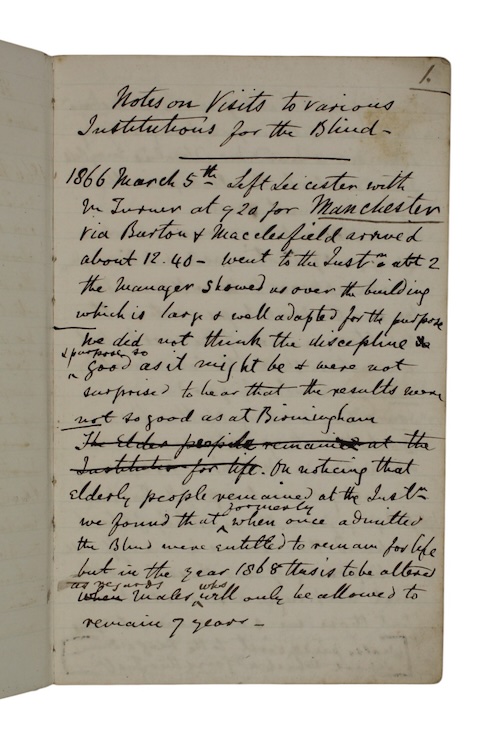 1.
Notes on Visits to various
Institutions for the Blind –
1866 March 5th Left Leicester with
Mr Turner at 9 20 for Manchester
via Burton & Macclesfield arrived
about 12.40 – went to the Instn at 2
the Manager showed us over the building
which is large & well adapted for the purpose
We did not think the discepline
& purpose so
good as it might be & were not
surprised to hear that the results were
not so good as at Birmingham
The Elder people remained at the
Institution for life. On noticing that
elderly people remained at the Instn
formerly
we found that when once admitted
the Blind were entitled to remain for life
but in the year 1868 this is to be altered
as regards who
when males will only be allowed to
remain 7 years –